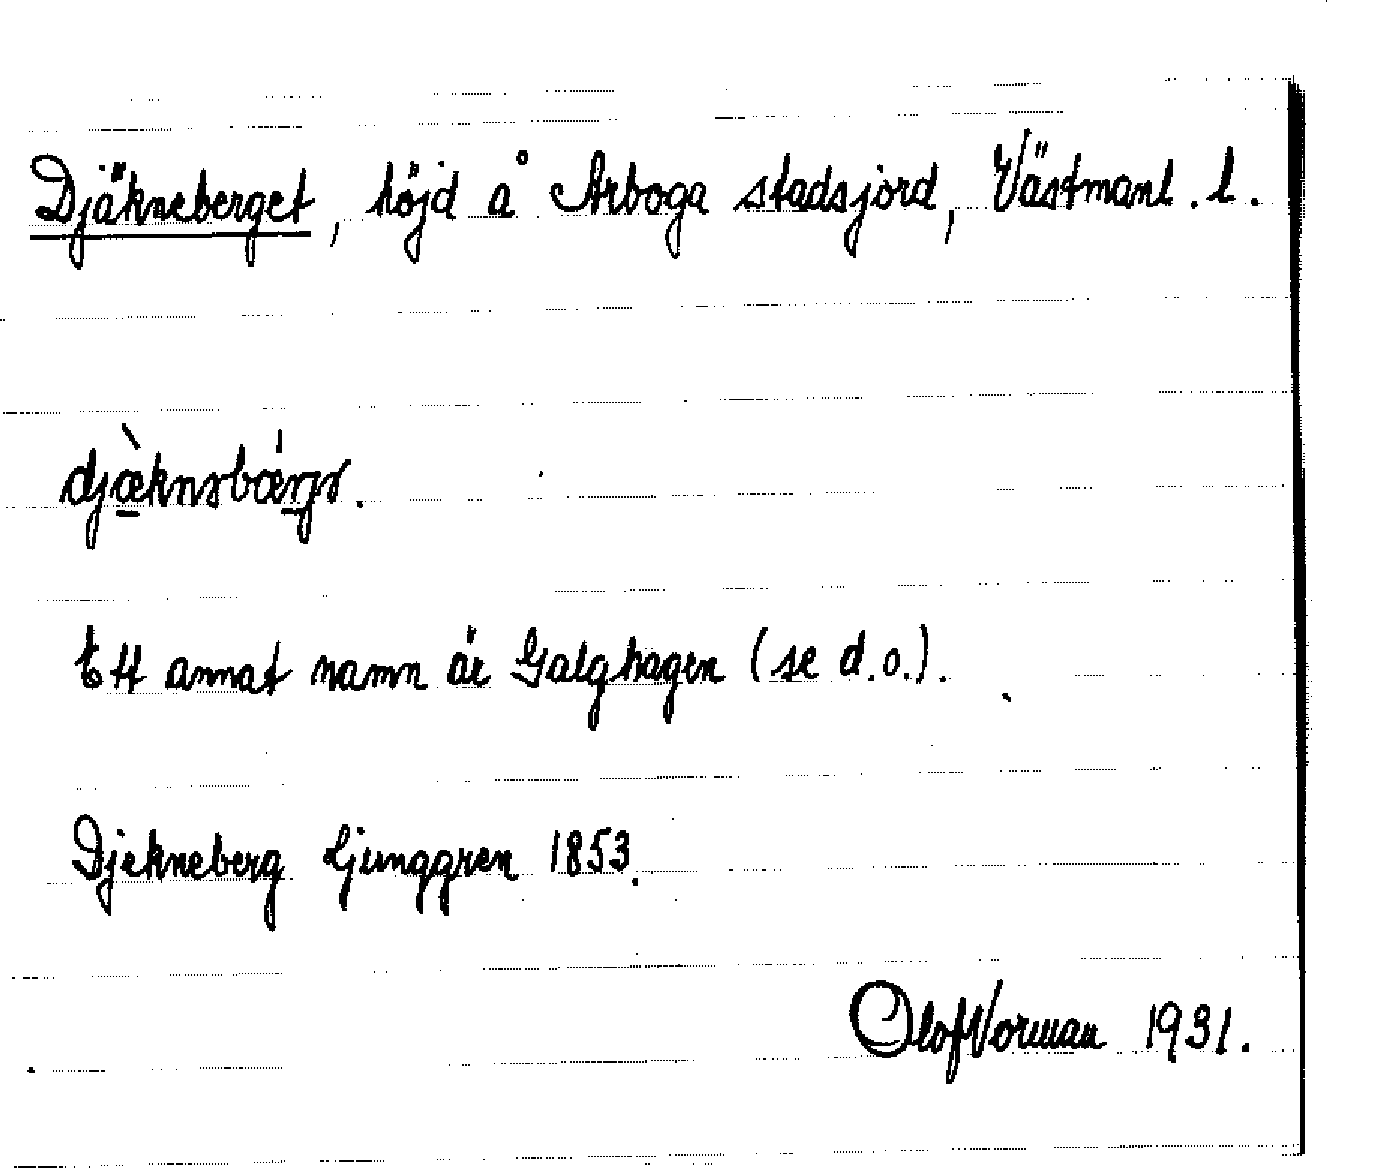 Djäkneberget, höjd å Arboga stadsjord, Västmanl. l.
Ett annat namn är Galghagen (se d.o.).
Djekneberg Ljunggren 1853.
Olof Norman 1931.